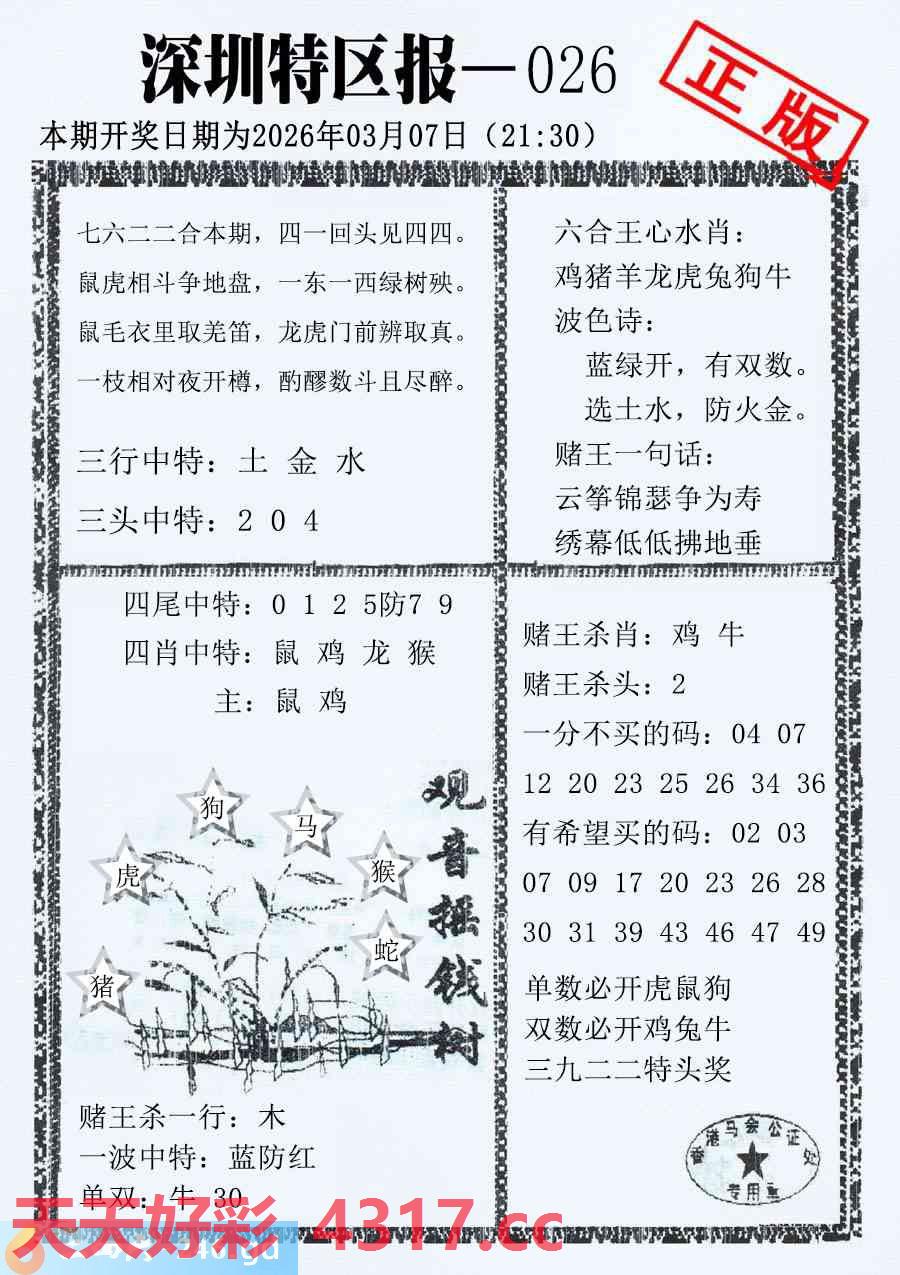 深圳特区报—026
正版
本期开奖日期为2026年03月07日（21:30）
七六二二合本期，四一回头见四四。
鼠虎相斗争地盘，一东一西绿树殃。
鼠毛衣里取羌笛，龙虎门前辨取真。
一枝相对夜开樽，酌醪数斗且尽醉。
三行中特：土 金 水
三头中特：2 0 4
六合王心水肖：
鸡猪羊龙虎兔狗牛
波色诗：
蓝绿开，有双数。
选土水，防火金。
赌王一句话：
云筝锦瑟争为寿
绣幕低低拂地垂
四尾中特：0 1 2 5防7 9
四肖中特：鼠 鸡 龙 猴
主：鼠 鸡
观音摇钱树
狗
马
虎
猴
蛇
猪
赌王杀一行：木
一波中特：蓝防红
单双：牛 30
赌王杀肖：鸡 牛
赌王杀头：2
一分不买的码：04 07
12 20 23 25 26 34 36
有希望买的码：02 03
07 09 17 20 23 26 28
30 31 39 43 46 47 49
单数必开虎鼠狗
双数必开鸡兔牛
三九二二特头奖
香港马会公证处
专用章
天天好彩 4317.cc